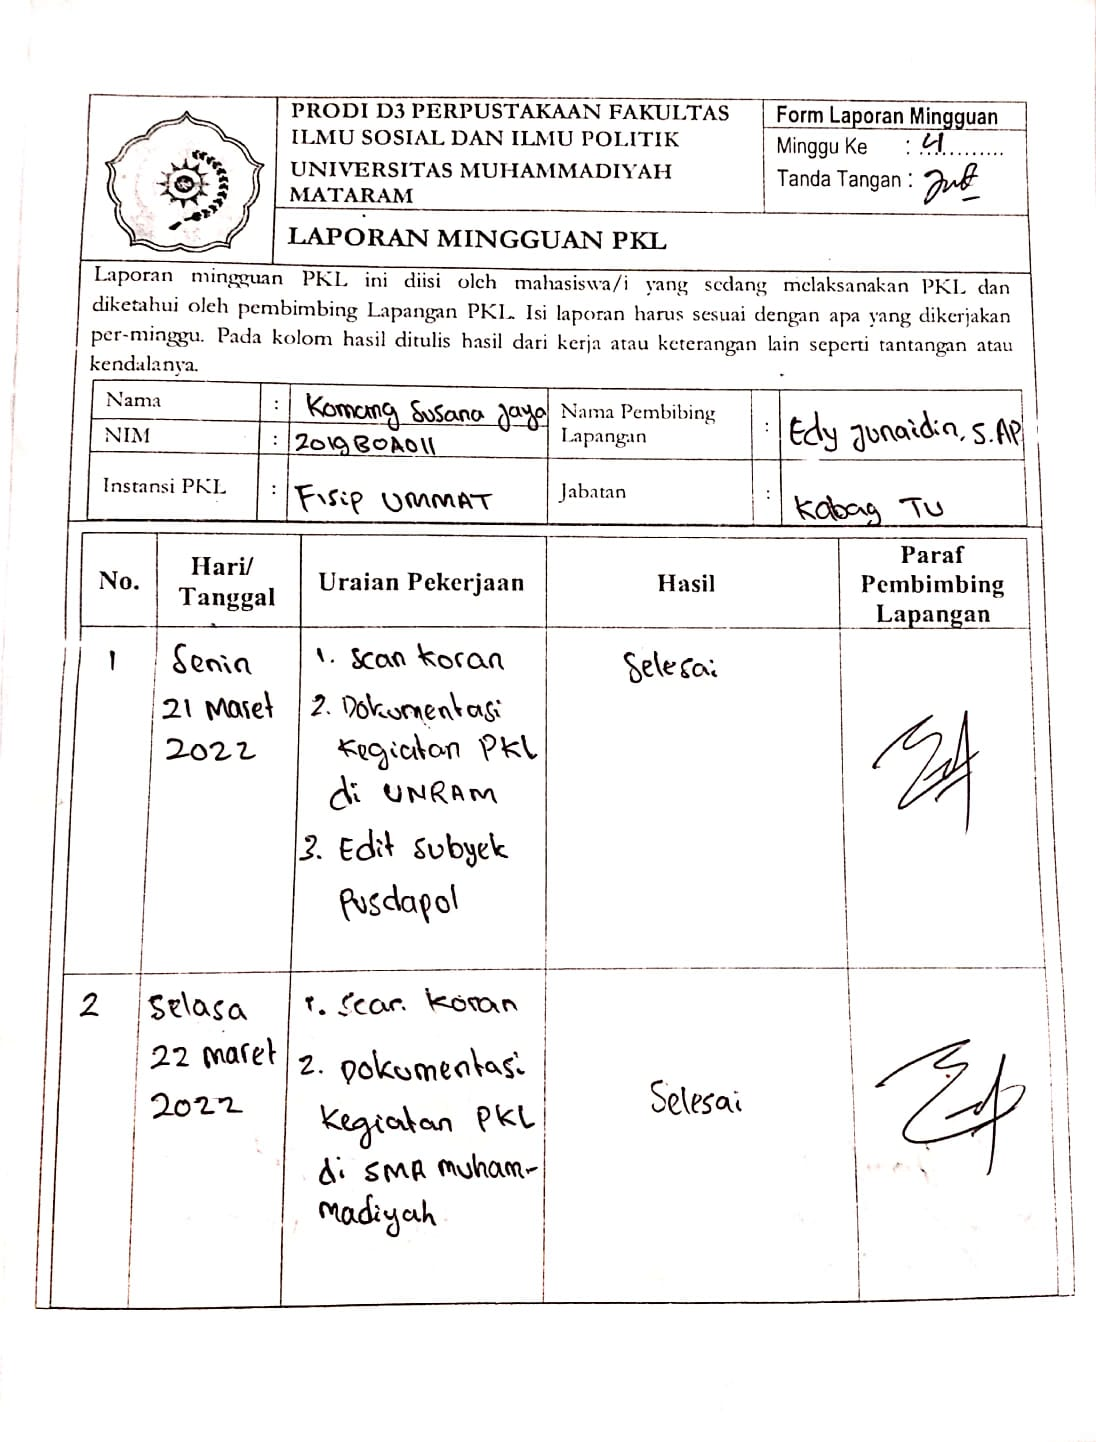 PRODI D3 PERPUSTAKAAN FAKULTAS
ILMU SOSIAL DAN ILMU POLITIK
UNIVERSITAS MUHAMMADIYAH
MATARAM
LAPORAN MINGGUAN PKL
Form Laporan Mingguan
Minggu Ke : 4
Tanda Tangan :
Laporan mingguan PKL ini diisi oleh mahasiswa/i yang sedang melaksanakan PKL dan
diketahui oleh pembimbing Lapangan PKL. Isi laporan harus sesuai dengan apa yang dikerjakan
per-minggu. Pada kolom hasil ditulis hasil dari kerja atau keterangan lain seperti tantangan atau
kendalanya.
Nama : Komang Susana Jaya
NIM : 2019B0A011
Nama Pembibing
Lapangan : Edy Junaidin, S.AP
Instansi PKL : Fisip UMMAT
Jabatan : Kabag TU
No.
Hari/
Tanggal
Uraian Pekerjaan
Hasil
Paraf
Pembimbing
Lapangan
1
Senin
21 Maret
2022
1. Scan Koran
2. Dokumentasi
Kegiatan PKL
di UNRAM
3. Edit Subyek
Pusdapol
Selesai
2
Selasa
22 maret
2022
1. Scan Koran
2. Dokumentasi
Kegiatan PKL
di SMA muham-
madiyah
Selesai